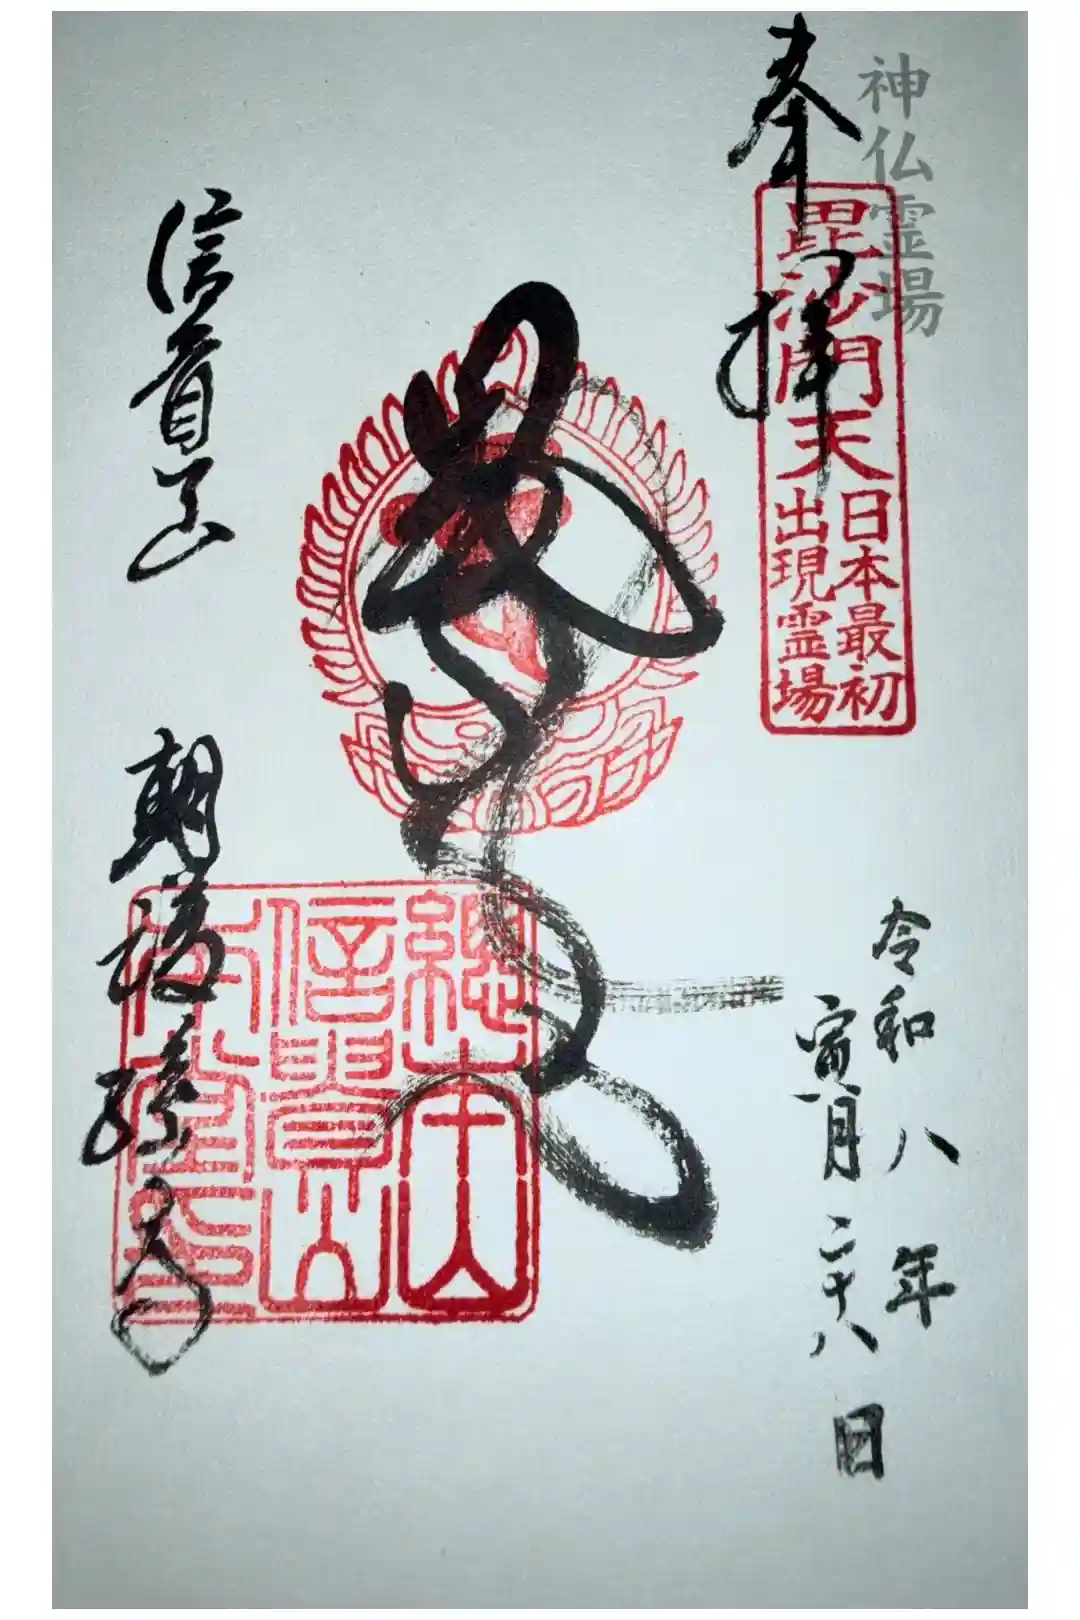 神仏霊場
奉拝
毘沙門天
日本最初
出現霊場
令和八年
寅月二十八日
信貴山
朝護孫子
總本山
信貴山